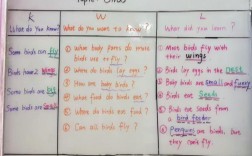 K
W
L
What do You Know?
What do you want to know?
What did you learn?
Some birds can fly
Birds have 2 wings
Some birds are big
Some birds are small
What body parts do most
birds use to fly?
When do birds lay eggs?
How are baby birds?
What food do birds eat?
Where do birds
Can all birds fly?
Most birds fly with
their wings
Birds lay eggs in the nest
Baby birds are small and funny
Birds eat seeds
Birds eat seeds from
a bird feeder
Penguins are birds, but
they cant fly.